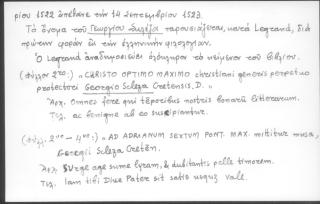 ρίου 1522 ἀπέθανε τὴν 14 Σεπτεμβρίου 1523.
Τὸ ὄνομα τοῦ Γεωργίου Σκλέζα παρουσιάζεται, κατὰ Legrand, διὰ
πρώτην φορὰν εἰς τὴν ἑλληνικὴν φιλολογίαν.
Ὁ Legrand ἀναδημοσιεύει ὁλόκληρον τὸ κείμενον τοῦ βιβλίου.
(φύλλον 2ον.) "CHRISTO OPTIMO MAXIMO christiani generis perpetuo
protectori Georgio Scleza Cretensis, D."
Ἀρχ. Omnes fere qui tēporibus nostris bonarū litterarum.
Τελ. ac benigne ab eo suscipiantur.
(φύλ. 2ον - 4ον:) "AD ADRIANUM SEXTUM PONT. MAX. mittitur musa,
Georgii Scleza Cretēn.
Ἀρχ. SUrge age sume lyram, & dubitantis pelle timorem.
Τελ. Iam tibi Dive Pater sit satis usquȝ vale.